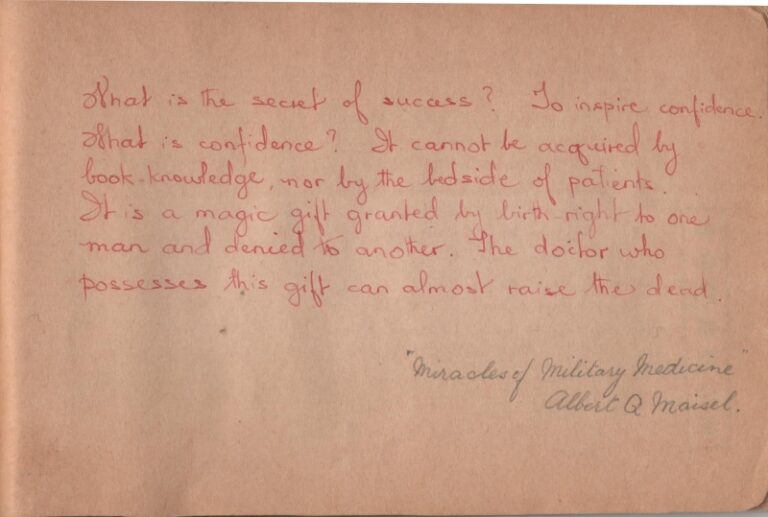 What is the secret of success? To inspire confidence.
What is confidence? It cannot be acquired by
book-knowledge, nor by the bedside of patients.
It is a magic gift granted by birth-right to one
man and denied to another. The doctor who
possesses this gift can almost raise the dead.
"Miracles of Military Medicine"
Albert Q Maisel.